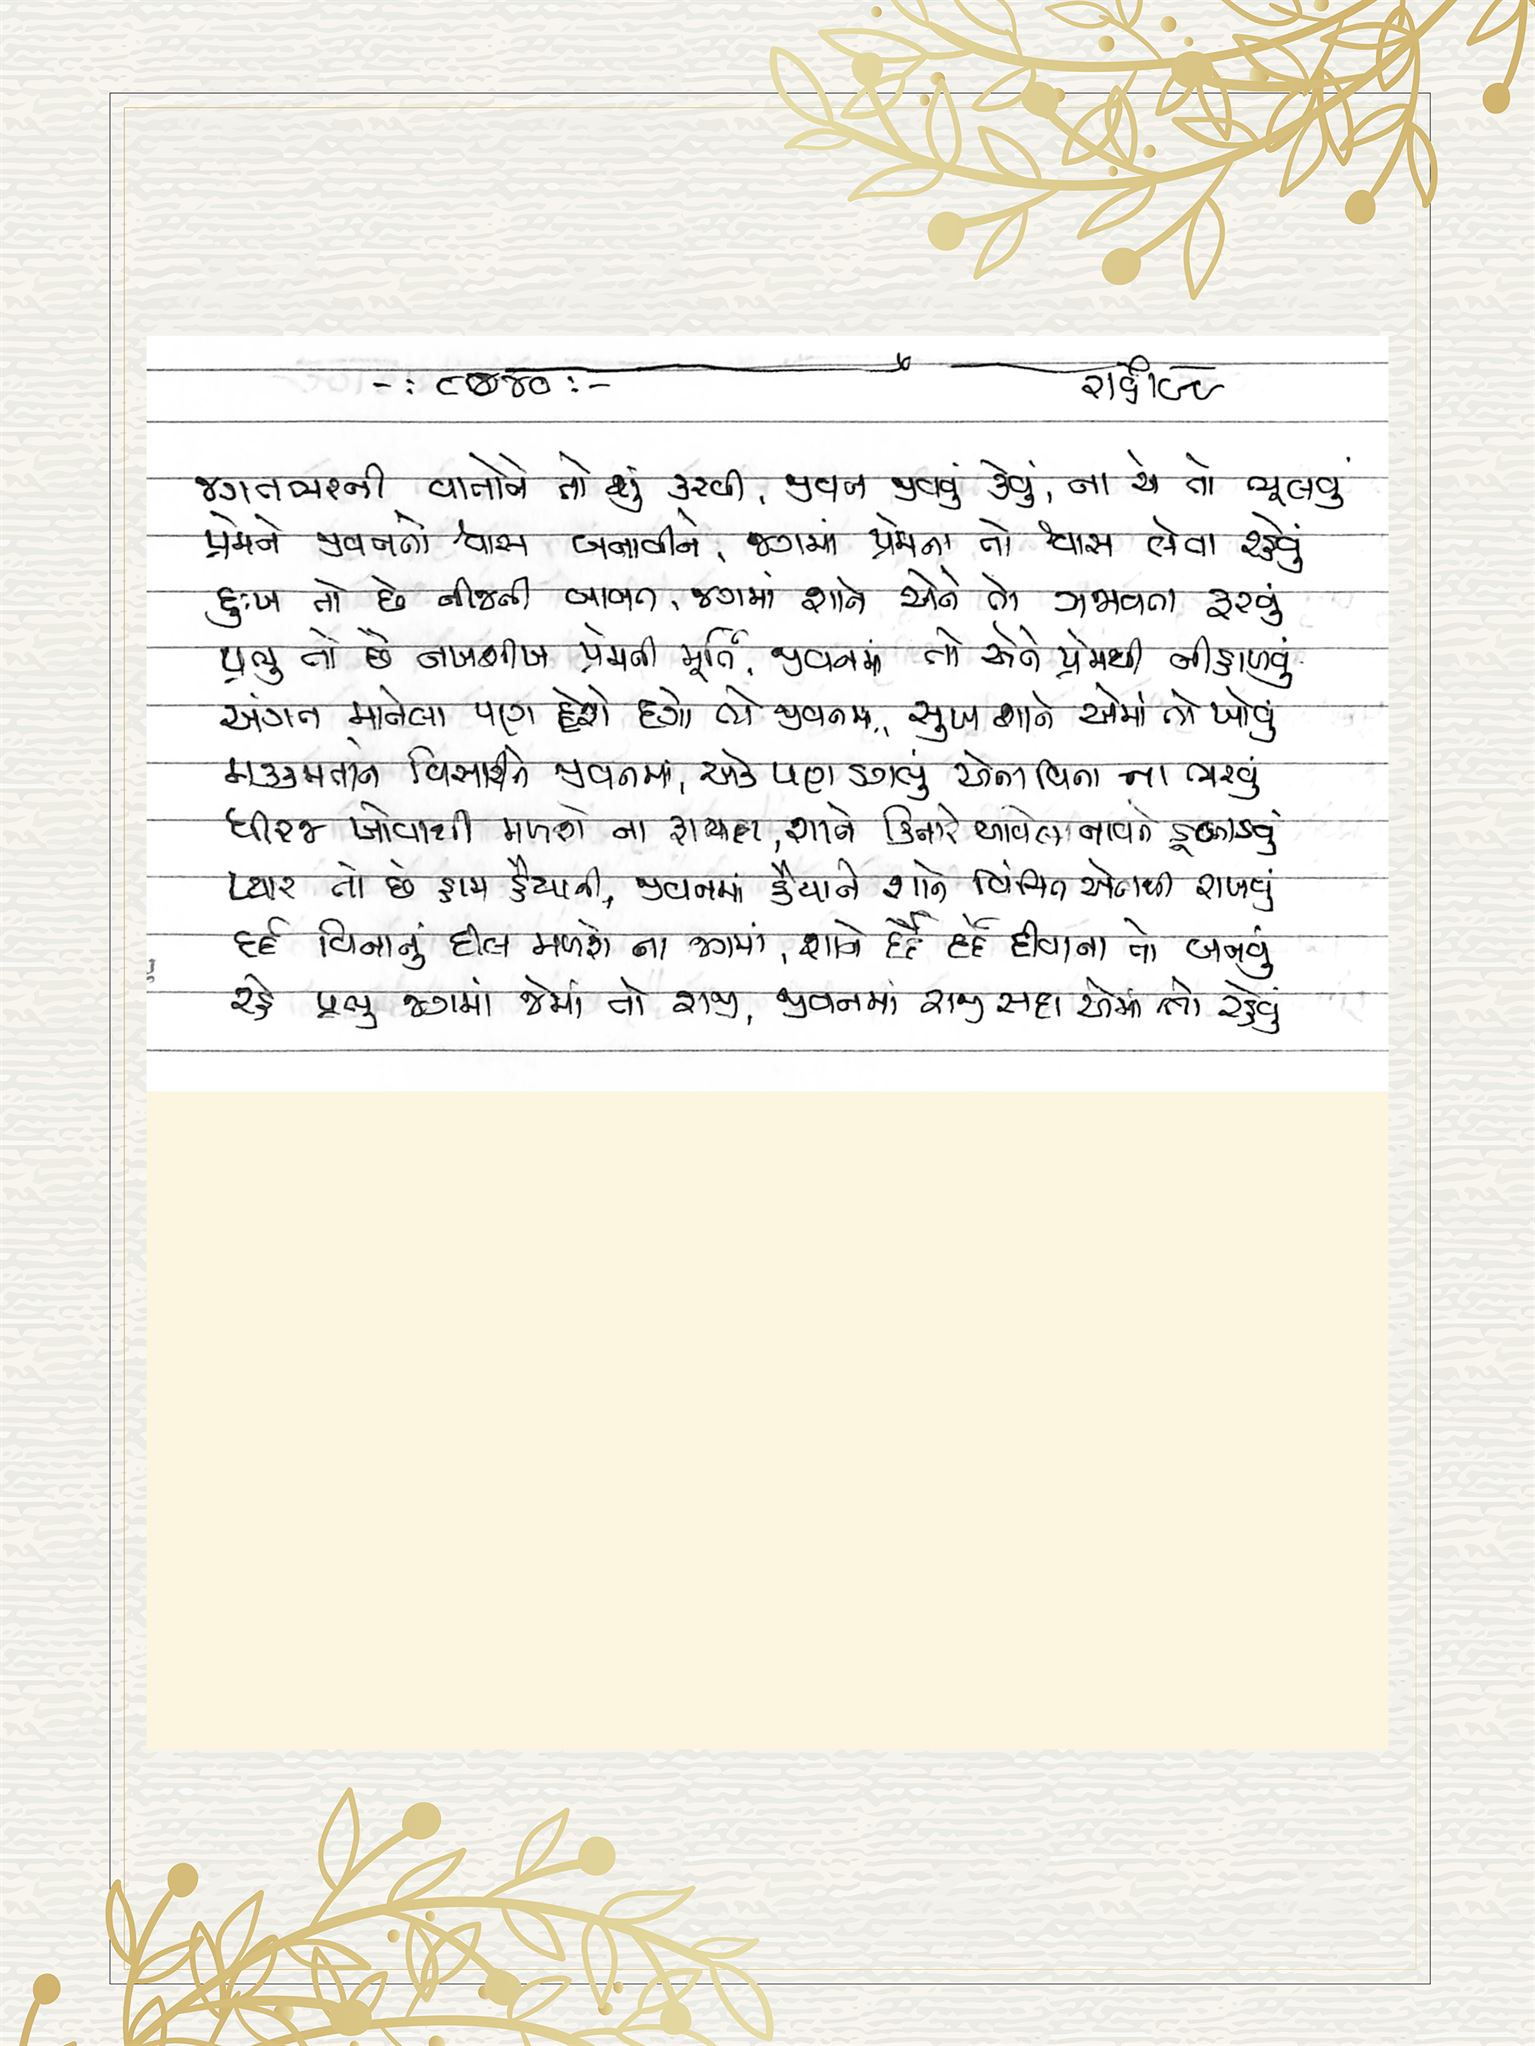 -: ૮૭૪૦ :-
જગતભરની વાતોને તો શું કરવી, જીવન જીવવું કેવું, ના એ તો ભૂલવું
પ્રેમને જીવનનો શ્વાસ બનાવીને, જગમાં પ્રેમના તો શ્વાસ લેવા રહેવું
દુઃખ તો છે નીજની બાબત, જગમાં શાને એને તો ગજવતા ફરવું
પ્રભુ તો છે નખશીખ પ્રેમની મૂર્તિ, જીવનમાં તો એને પ્રેમથી નીહાળવું
અંગત માનેલા પણ દેશે દગો જો જીવનમાં, સુખ શાને એમાં તો ખોવું
મક્કમતાને વિસારીને જીવનમાં, એક પણ ડગલું એના વિના ના ભરવું
ધીરજ ખોવાથી મળશે ના ફાયદા, શાને કિનારે આવેલા નાવને ડૂબાડવું
પ્યાર તો છે કામ હૈયાની, જીવનમાં હૈયાને શાને વંચિત એનાથી રાખવું
દર્દ વિનાનું દીલ મળશે ના જગમાં, શાને દર્દે દર્દે દીવાના તો બનવું
રહે પ્રભુ જગમાં જેમાં તો રાજી, જીવનમાં રાજી સદા એમાં તો રહેવું